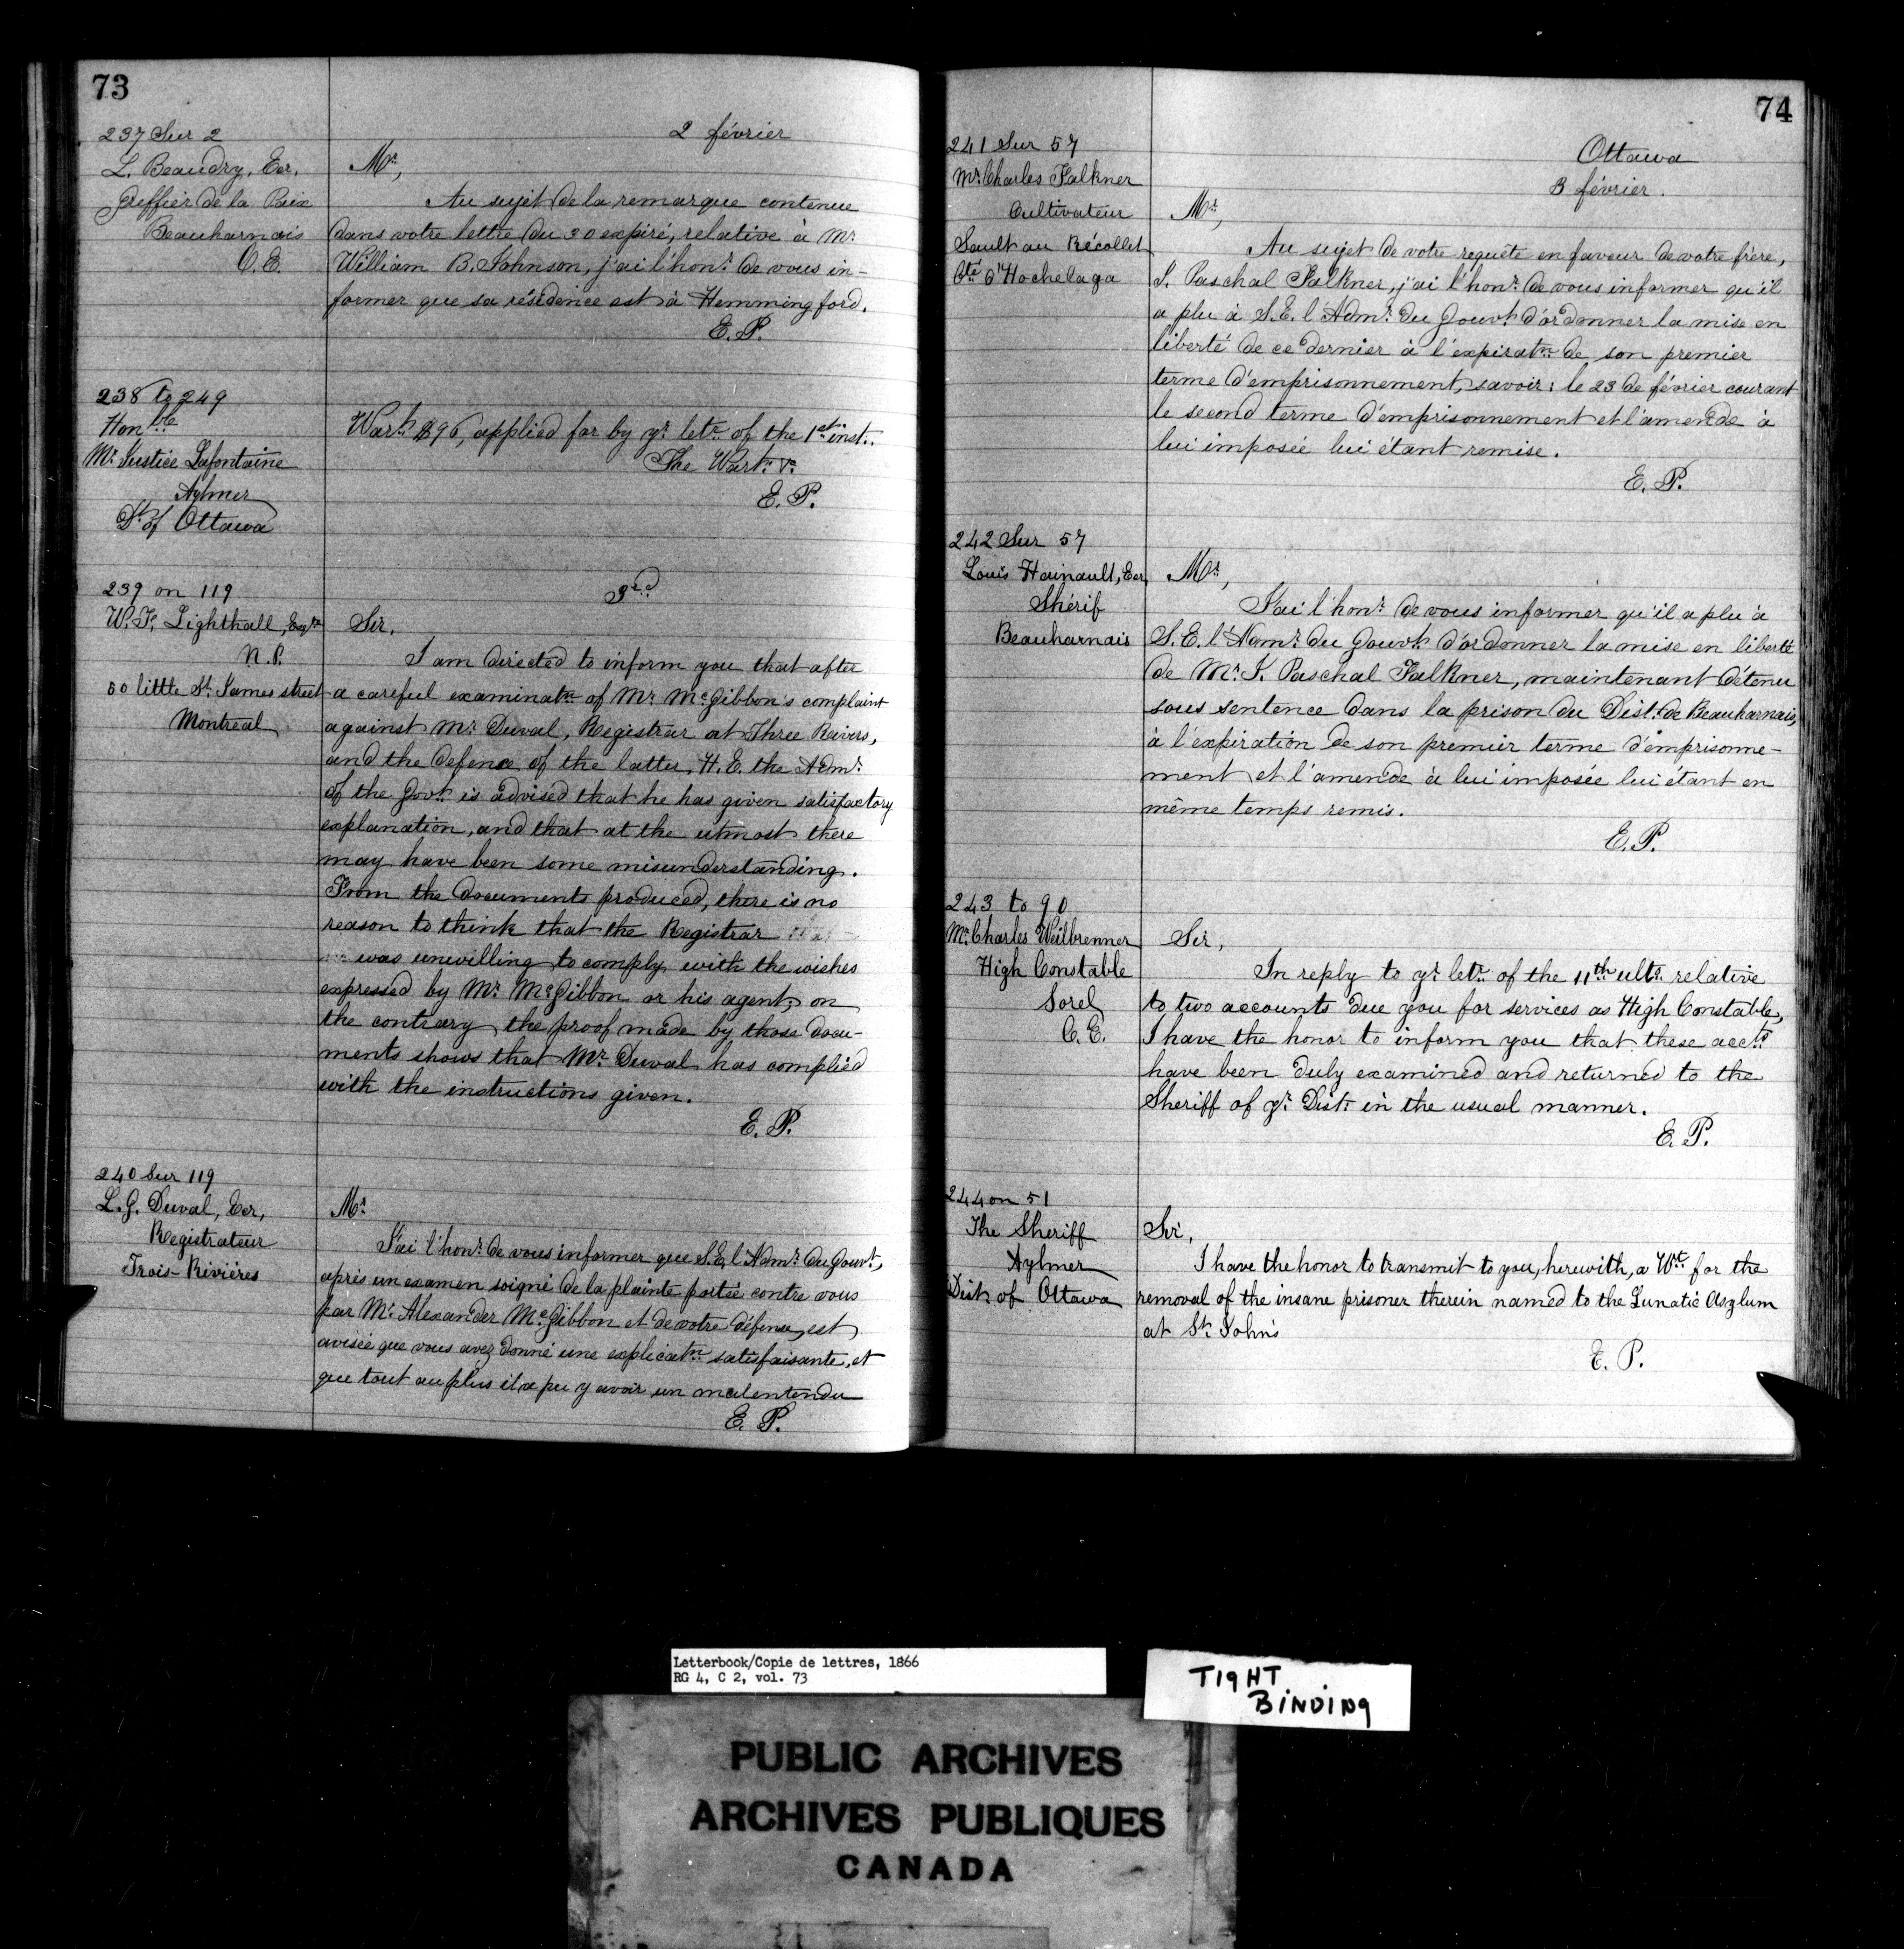 73
2 février
237 Sur 2
L. Beaudry, Ecr,
Greffier de la Paix
Beauharnois
C. E.
Mr,
Au sujet de la remarque contenue
dans votre lettre du 30 expiré, relative à Mr
William B. Johnson, j'ai l'honr de vous in-
former que sa résidence est à Hemmingford.
E. P.
238 to 249
Honble
Mr Justice Lafontaine
Aylmer
Dt of Ottawa
Wart $96, applied for by yr letr of the 1st inst.
The Wart
E. P.
239 on 119
W. F. Lighthall, Esqre
N. P.
50 little St James street
Montreal
3rd
Sir,
I am directed to inform you that after
a careful examinatn of Mr McGibbon's complaint
against Mr Duval, Registrar at Three Rivers,
and the defence of the latter, H. E. the Admr
of the Govt is advised that he has given satisfactory
explanation, and that at the utmost there
may have been some misunderstanding.
From the documents produced, there is no
reason to think that the Registrar
was unwilling to comply with the wishes
expressed by Mr McGibbon or his agent, on
the contrary the proof made by those docu-
ments shows that Mr Duval has complied
with the instructions given.
E. P.
240 Sur 119
L. G. Duval, Ecr,
Registrateur
Trois-Rivières
Mr
J'ai l'honr de vous informer que S.E. l'Admr du Gouvt,
après un examen soigné de la plainte portée contre vous
par Mr Alexander McGibbon et de votre défense, est
avisée que vous avez donné une explicatn satisfaisante, et
que tout au plus il a pu y avoir un malentendu
E. P.
74
Ottawa
3 février.
241 Sur 57
Mr Charles Falkner
Cultivateur
Sault au Récollet
Cté d'Hochelaga
Mr,
Au sujet de votre requête en faveur de votre frère,
J. Paschal Falkner, j'ai l'honr de vous informer qu'il
a plu à S.E. l'Admr du Gouvt d'ordonner la mise en
liberté de ce dernier à l'expiratn de son premier
terme d'emprisonnement, savoir: le 23 de février courant
le second terme d'emprisonnement et l'amende à
lui imposée lui étant remise.
E. P.
242 Sur 57
Louis Hainault, Ecr,
Shérif
Beauharnais
Mr,
J'ai l'honr de vous informer qu'il a plu à
S.E. l'Admr du Gouvt d'ordonner la mise en liberté
de Mr J. Paschal Falkner, maintenant détenu
sous sentence dans la prison du Dist. de Beauharnais,
à l'expiration de son premier terme d'emprisonne-
ment et l'amende à lui imposée lui étant en
même temps remis.
E. P.
243 to 90
Mr Charles Weilbrenner
High Constable
Sorel
C. E.
Sir,
In reply to yr letr of the 11th ulto relative
to two accounts due you for services as High Constable,
I have the honor to inform you that these accts
have been duly examined and returned to the
Sheriff of yr Dist. in the usual manner.
E. P.
244 on 51
The Sheriff
Aylmer
Dist. of Ottawa
Sir,
I have the honor to transmit to you, herewith, a Wt for the
removal of the insane prisoner therein named to the Lunatic Asylum
at St John's
E. P.
Letterbook/Copie de lettres, 1866
RG 4, C 2, vol. 73
TIGHT
BINDING
PUBLIC ARCHIVES
ARCHIVES PUBLIQUES
CANADA